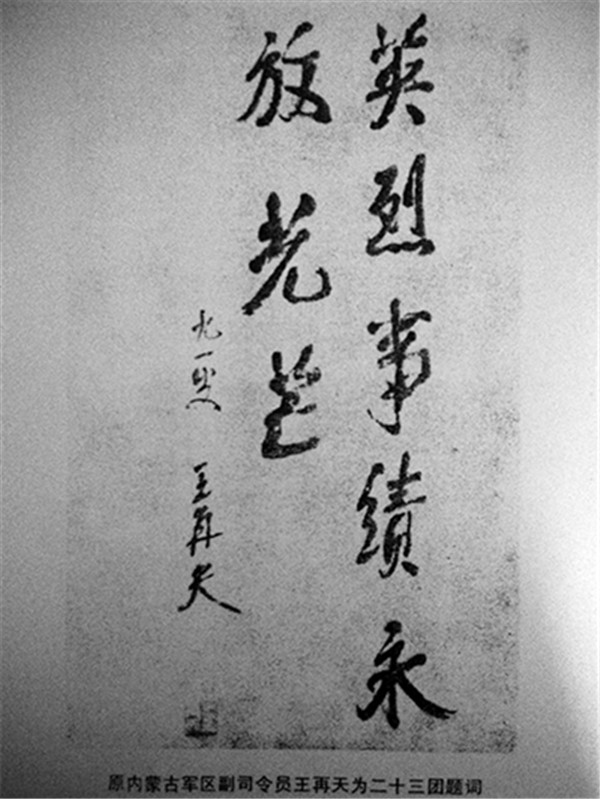 英烈事绩永
放光芒
王再天
原内蒙古军区副司令员王再天为二十三团题词